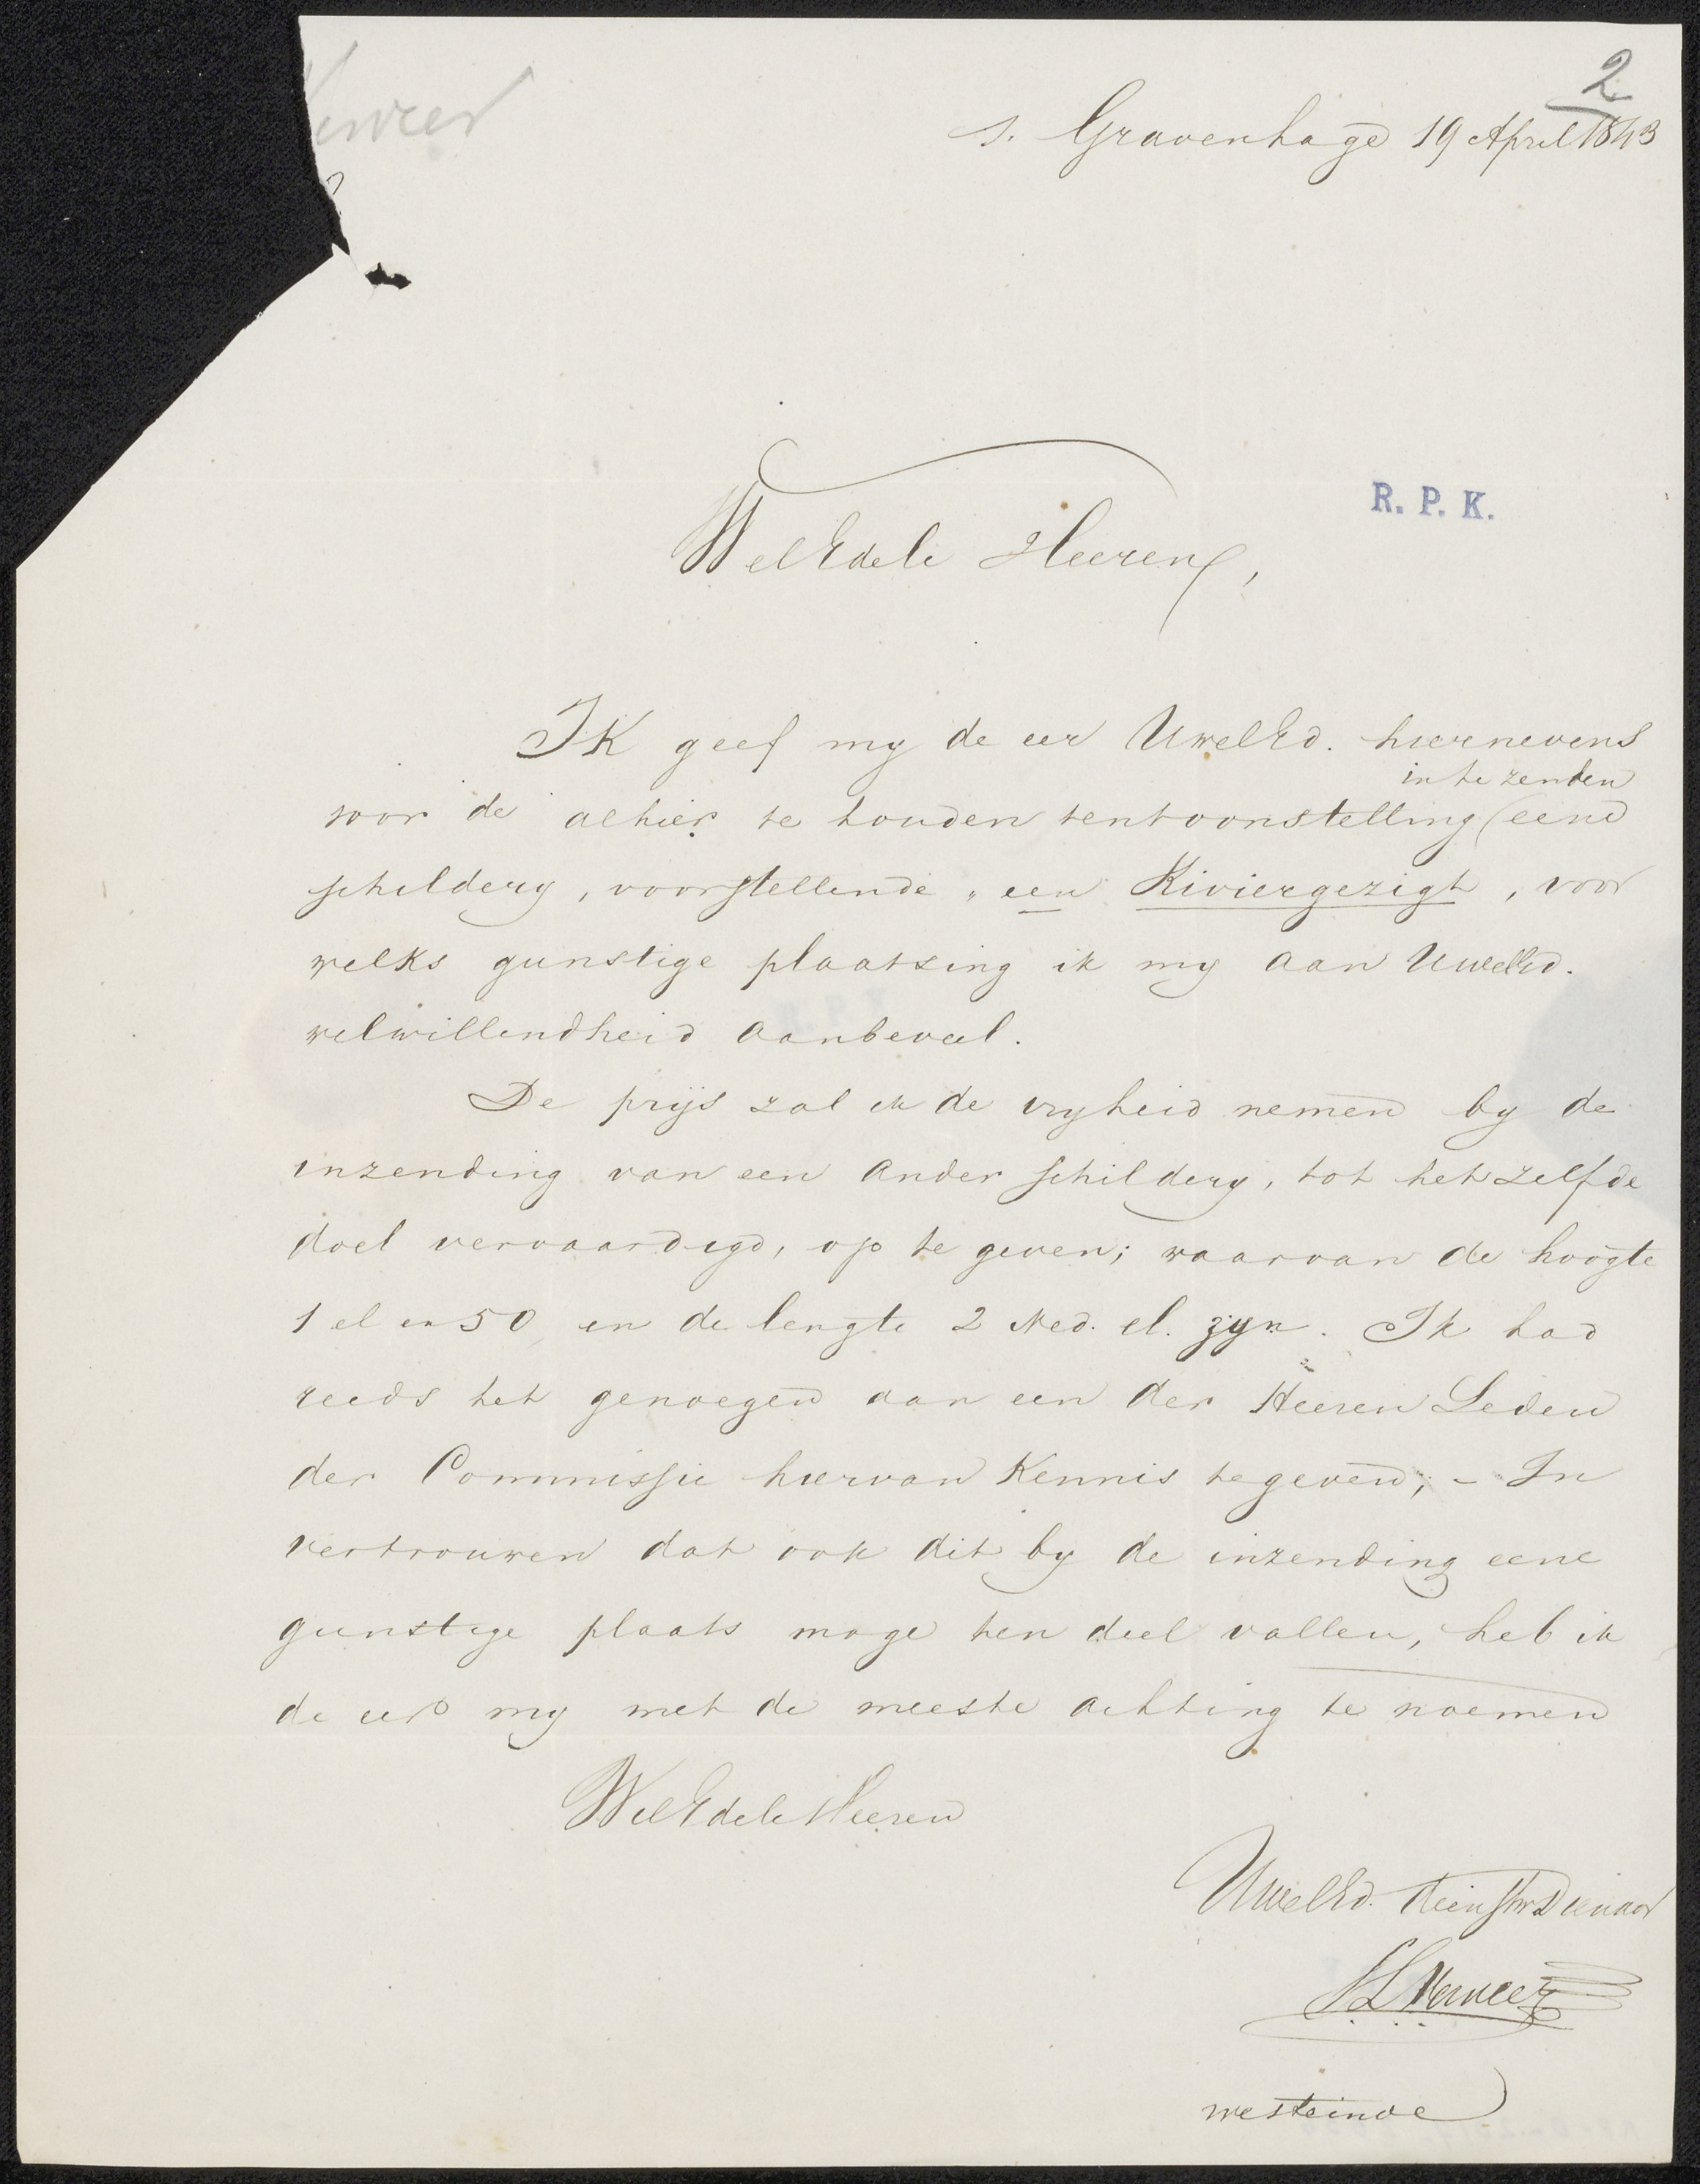 2
Verveer
s. Gravenhage 19 April 1843
R. P. K.
WelEdele Heeren,
Ik geef my de eer UwelEd. hiernevens
in te zenden
voor de alhier te houden tentoonstelling (eene
schildery, voorstellende „ een Riviergezigt, voor
welks gunstige plaatsing ik my aan UwelEd.
welwillendheid aanbeveel.
De prijs zal ik de vryheid nemen by de
inzending van een ander schildery, tot het zelfde
doel vervaardigd, op te geven; waarvan de hoogte
1 el en 50 en de lengte 2 Ned. el. zyn. Ik had
reeds het genoegen aan een der Heeren Leden
der Commissie hiervan Kennis te geven; – In
vertrouwen dat ook dit by de inzending eene
gunstige plaats moge ten deel vallen, heb ik
de eer my met de meeste achting te noemen
WelEdele Heeren
UwelEd. Dienstw Dienaar
S L Verveer
westeinde